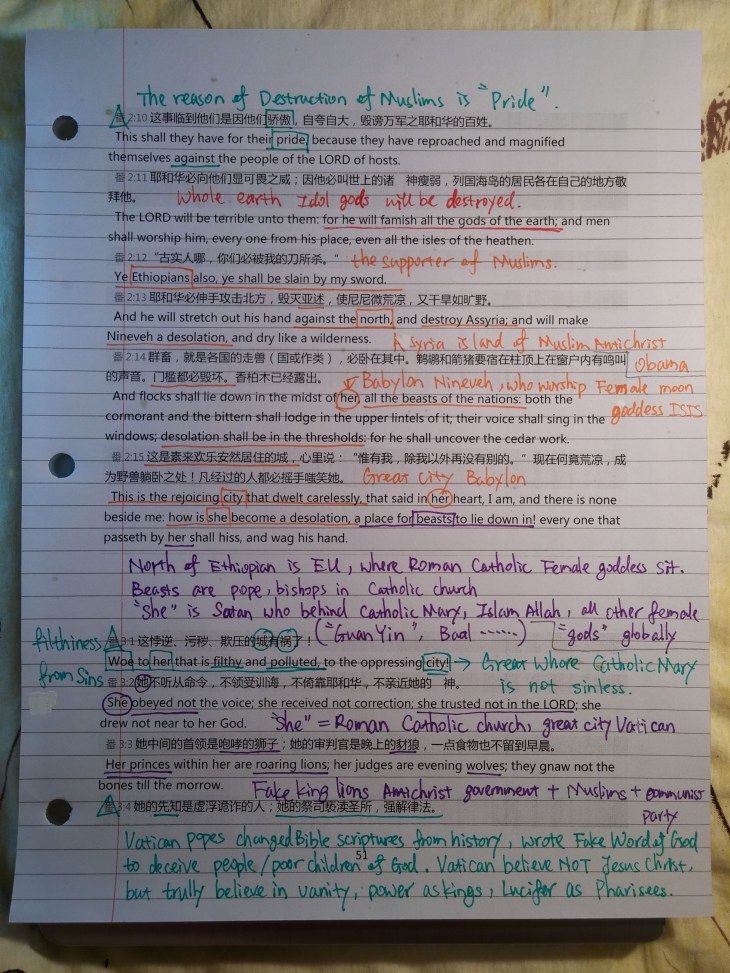 The reason of Destruction of Muslims is "Pride".
番 2:10 这事临到他们是因他们骄傲，自夸自大，毁谤万军之耶和华的百姓。
This shall they have for their pride, because they have reproached and magnified
themselves against the people of the LORD of hosts.
番 2:11 耶和华必向他们显可畏之威；因他必叫世上的诸 神瘦弱，列国海岛的居民各在自己的地方敬
拜他。 Whole earth Idol gods will be destroyed.
The LORD will be terrible unto them: for he will famish all the gods of the earth; and men
shall worship him, every one from his place, even all the isles of the heathen.
番 2:12 "古实人哪，你们必被我的刀所杀。" the supporter of Muslims.
Ye Ethiopians also, ye shall be slain by my sword.
番 2:13 耶和华必伸手攻击北方，毁灭亚述，使尼尼微荒凉，又干旱如旷野。
And he will stretch out his hand against the north, and destroy Assyria; and will make
Nineveh a desolation, and dry like a wilderness. Syria island of Muslim Antichrist
Obama
番 2:14 群畜，就是各国的走兽（国或作类），必卧在其中。鹈鹕和箭猪要宿在柱顶上在窗户内有鸣叫
的声音。门槛都必毁坏。香柏木已经露出。 Babylon Nineveh, who worship Female moon
goddess ISIS
And flocks shall lie down in the midst of her, all the beasts of the nations: both the
cormorant and the bittern shall lodge in the upper lintels of it; their voice shall sing in the
windows; desolation shall be in the thresholds: for he shall uncover the cedar work.
番 2:15 这是素来欢乐安然居住的城，心里说："惟有我，除我以外再没有别的。"现在何竟荒凉，成
为野兽躺卧之处！凡经过的人都必摇手嗤笑她。 Great City Babylon
This is the rejoicing city that dwelt carelessly, that said in her heart, I am, and there is none
beside me: how is she become a desolation, a place for beasts to lie down in! every one that
passeth by her shall hiss, and wag his hand.
North of Ethiopian is EU, where Roman Catholic Female goddess sit.
Beasts are pope, bishops in Catholic church
"She" is Satan who behind Catholic Mary, Islam Allah, all other female
("GuanYin", Baal ......) "gods" globally
filthiness from Sins
番 3:1 这悖逆、污秽、欺压的城有祸了！
Woe to her that is filthy and polluted, to the oppressing city! → Great Whore Catholic Mary
is not sinless.
番 3:2 她不听从命令，不领受训诲，不倚靠耶和华，不亲近她的 神。
She obeyed not the voice; she received not correction; she trusted not in the LORD; she
drew not near to her God. "She" = Roman Catholic church, great city Vatican
番 3:3 她中间的首领是咆哮的狮子；她的审判官是晚上的豺狼，一点食物也不留到早晨。
Her princes within her are roaring lions; her judges are evening wolves; they gnaw not the
bones till the morrow. Fake king lions Antichrist government + Muslims + communist
party
番 3:4 她的先知是虚浮诡诈的人；她的祭司亵渎圣所，强解律法。
Vatican Popes changed Bible scriptures from history, wrote Fake Word of God
51
to deceive people/poor children of God. Vatican believe NOT Jesus Christ,
but trully believe in vanity, power as kings, Lucifer as Pharisees.